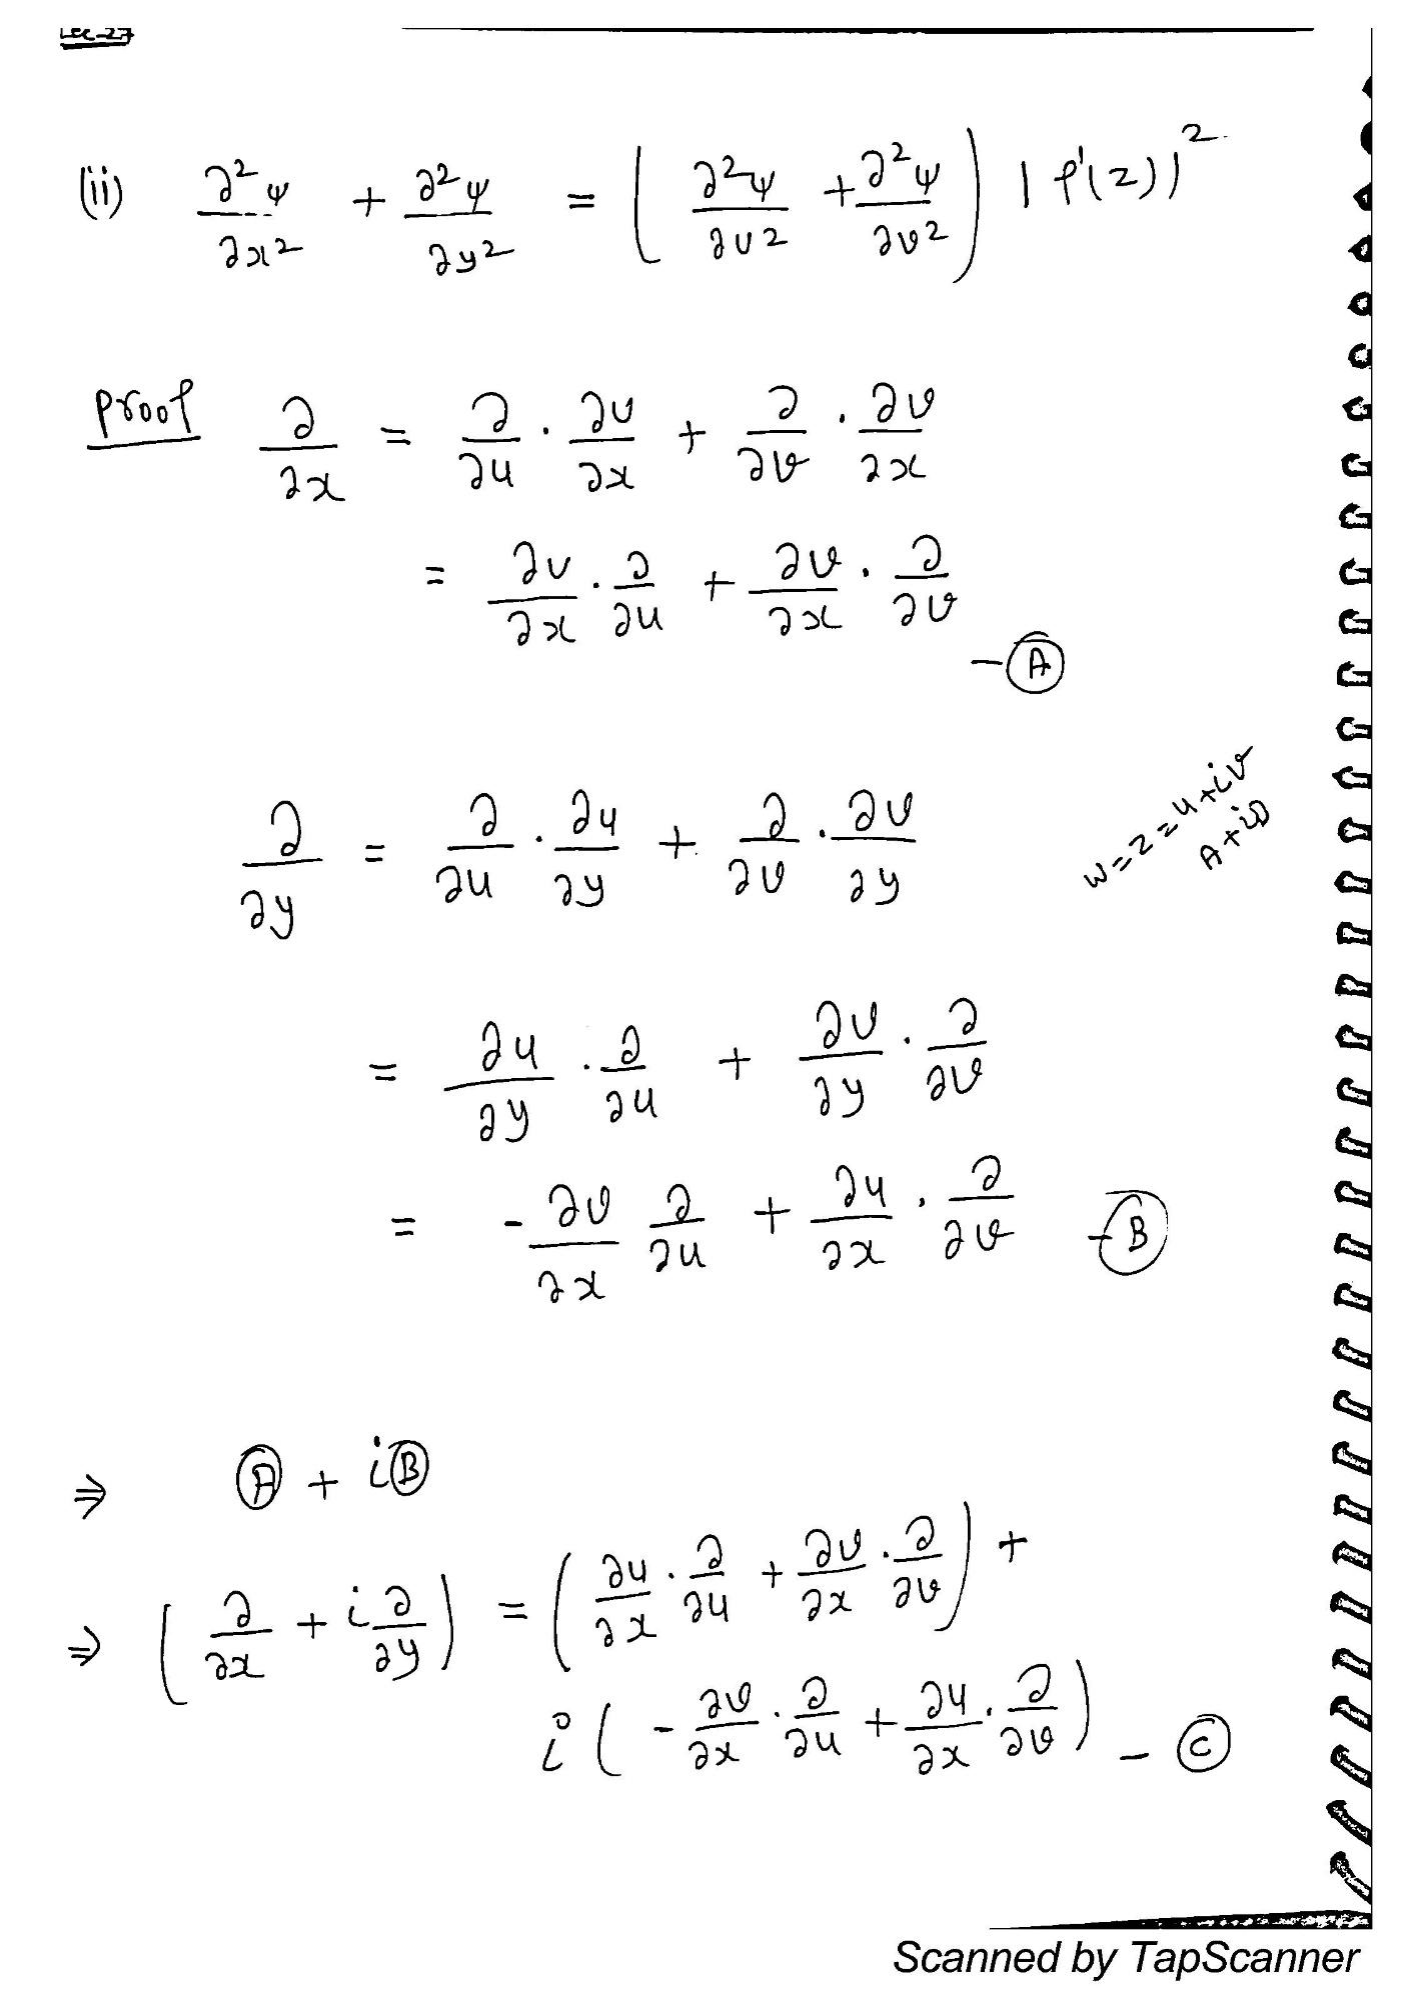 Lec-27
(ii) ∂²ψ/∂x² + ∂²ψ/∂y² = (∂²ψ/∂u² + ∂²ψ/∂v²) |f'(z)|²
Proof ∂/∂x = ∂/∂u · ∂u/∂x + ∂/∂v · ∂v/∂x
= ∂u/∂x · ∂/∂u + ∂v/∂x · ∂/∂v
- Ⓐ
w=z=u+iv
A+iB
∂/∂y = ∂/∂u · ∂u/∂y + ∂/∂v · ∂v/∂y
= ∂u/∂y · ∂/∂u + ∂v/∂y · ∂/∂v
= -∂v/∂x ∂/∂u + ∂u/∂x · ∂/∂v - Ⓑ
⇒ Ⓐ + iⒷ
⇒ (∂/∂x + i∂/∂y) = (∂u/∂x · ∂/∂u + ∂v/∂x · ∂/∂v) +
i(-∂v/∂x · ∂/∂u + ∂u/∂x · ∂/∂v) - Ⓒ
Scanned by TapScanner